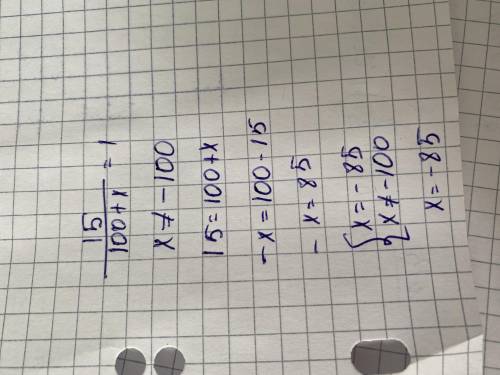 15/(100+x) = 1
x ≠ -100
15 = 100+x
-x = 100-15
-x = 85
{x = -85
{x ≠ -100
x = -85